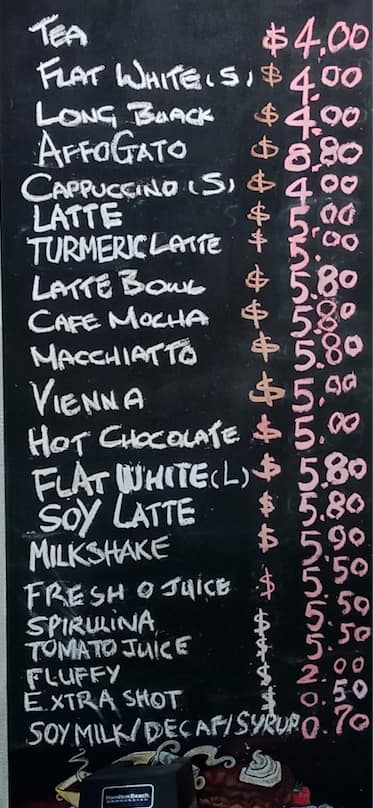 TEA $4.00
FLAT WHITE (S) $4.00
LONG BLACK $4.00
AFFOGATO $8.80
CAPPUCCINO (S) $4.00
LATTE $5.00
TURMERIC LATTE $5.00
LATTE BOWL $5.80
CAFE MOCHA $5.80
MACCHIATTO $5.80
VIENNA $5.00
HOT CHOCOLATE $5.00
FLAT WHITE (L) $5.80
SOY LATTE $5.80
MILKSHAKE $5.90
FRESH O JUICE $5.50
SPIRULINA $5.50
TOMATO JUICE $5.50
FLUFFY $2.00
EXTRA SHOT $0.50
SOYMILK/DECAF/SYRUP 0.70
Hamilton Beach